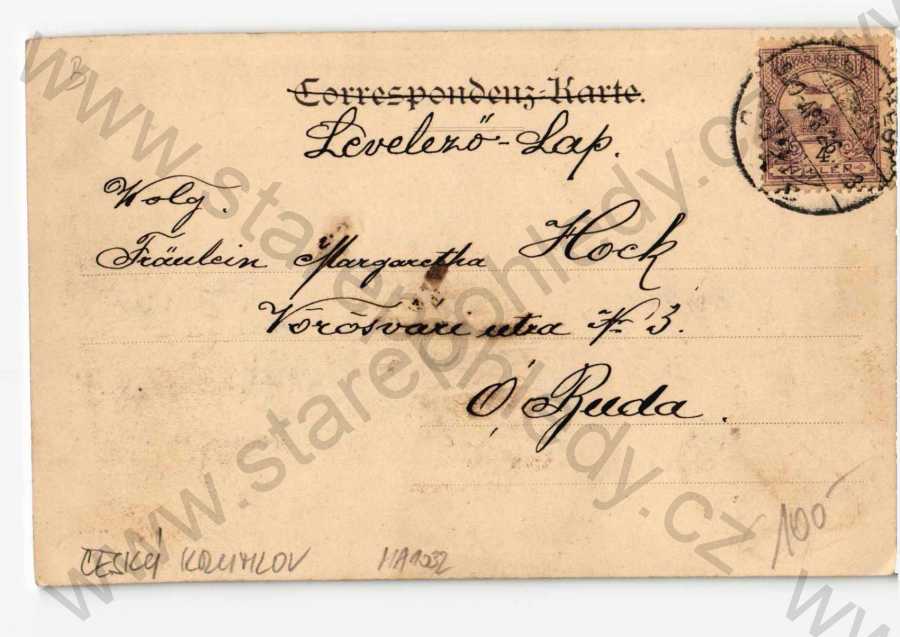 Correspondenz-Karte.
Levelező-Lap.
Wolg.
Fräulein Margaretha Hock
Vörösvari utza № 3.
Ó Buda.
ČESKÝ KRUMLOV
100
www.starepohledy.cz
www.starepohledy.cz